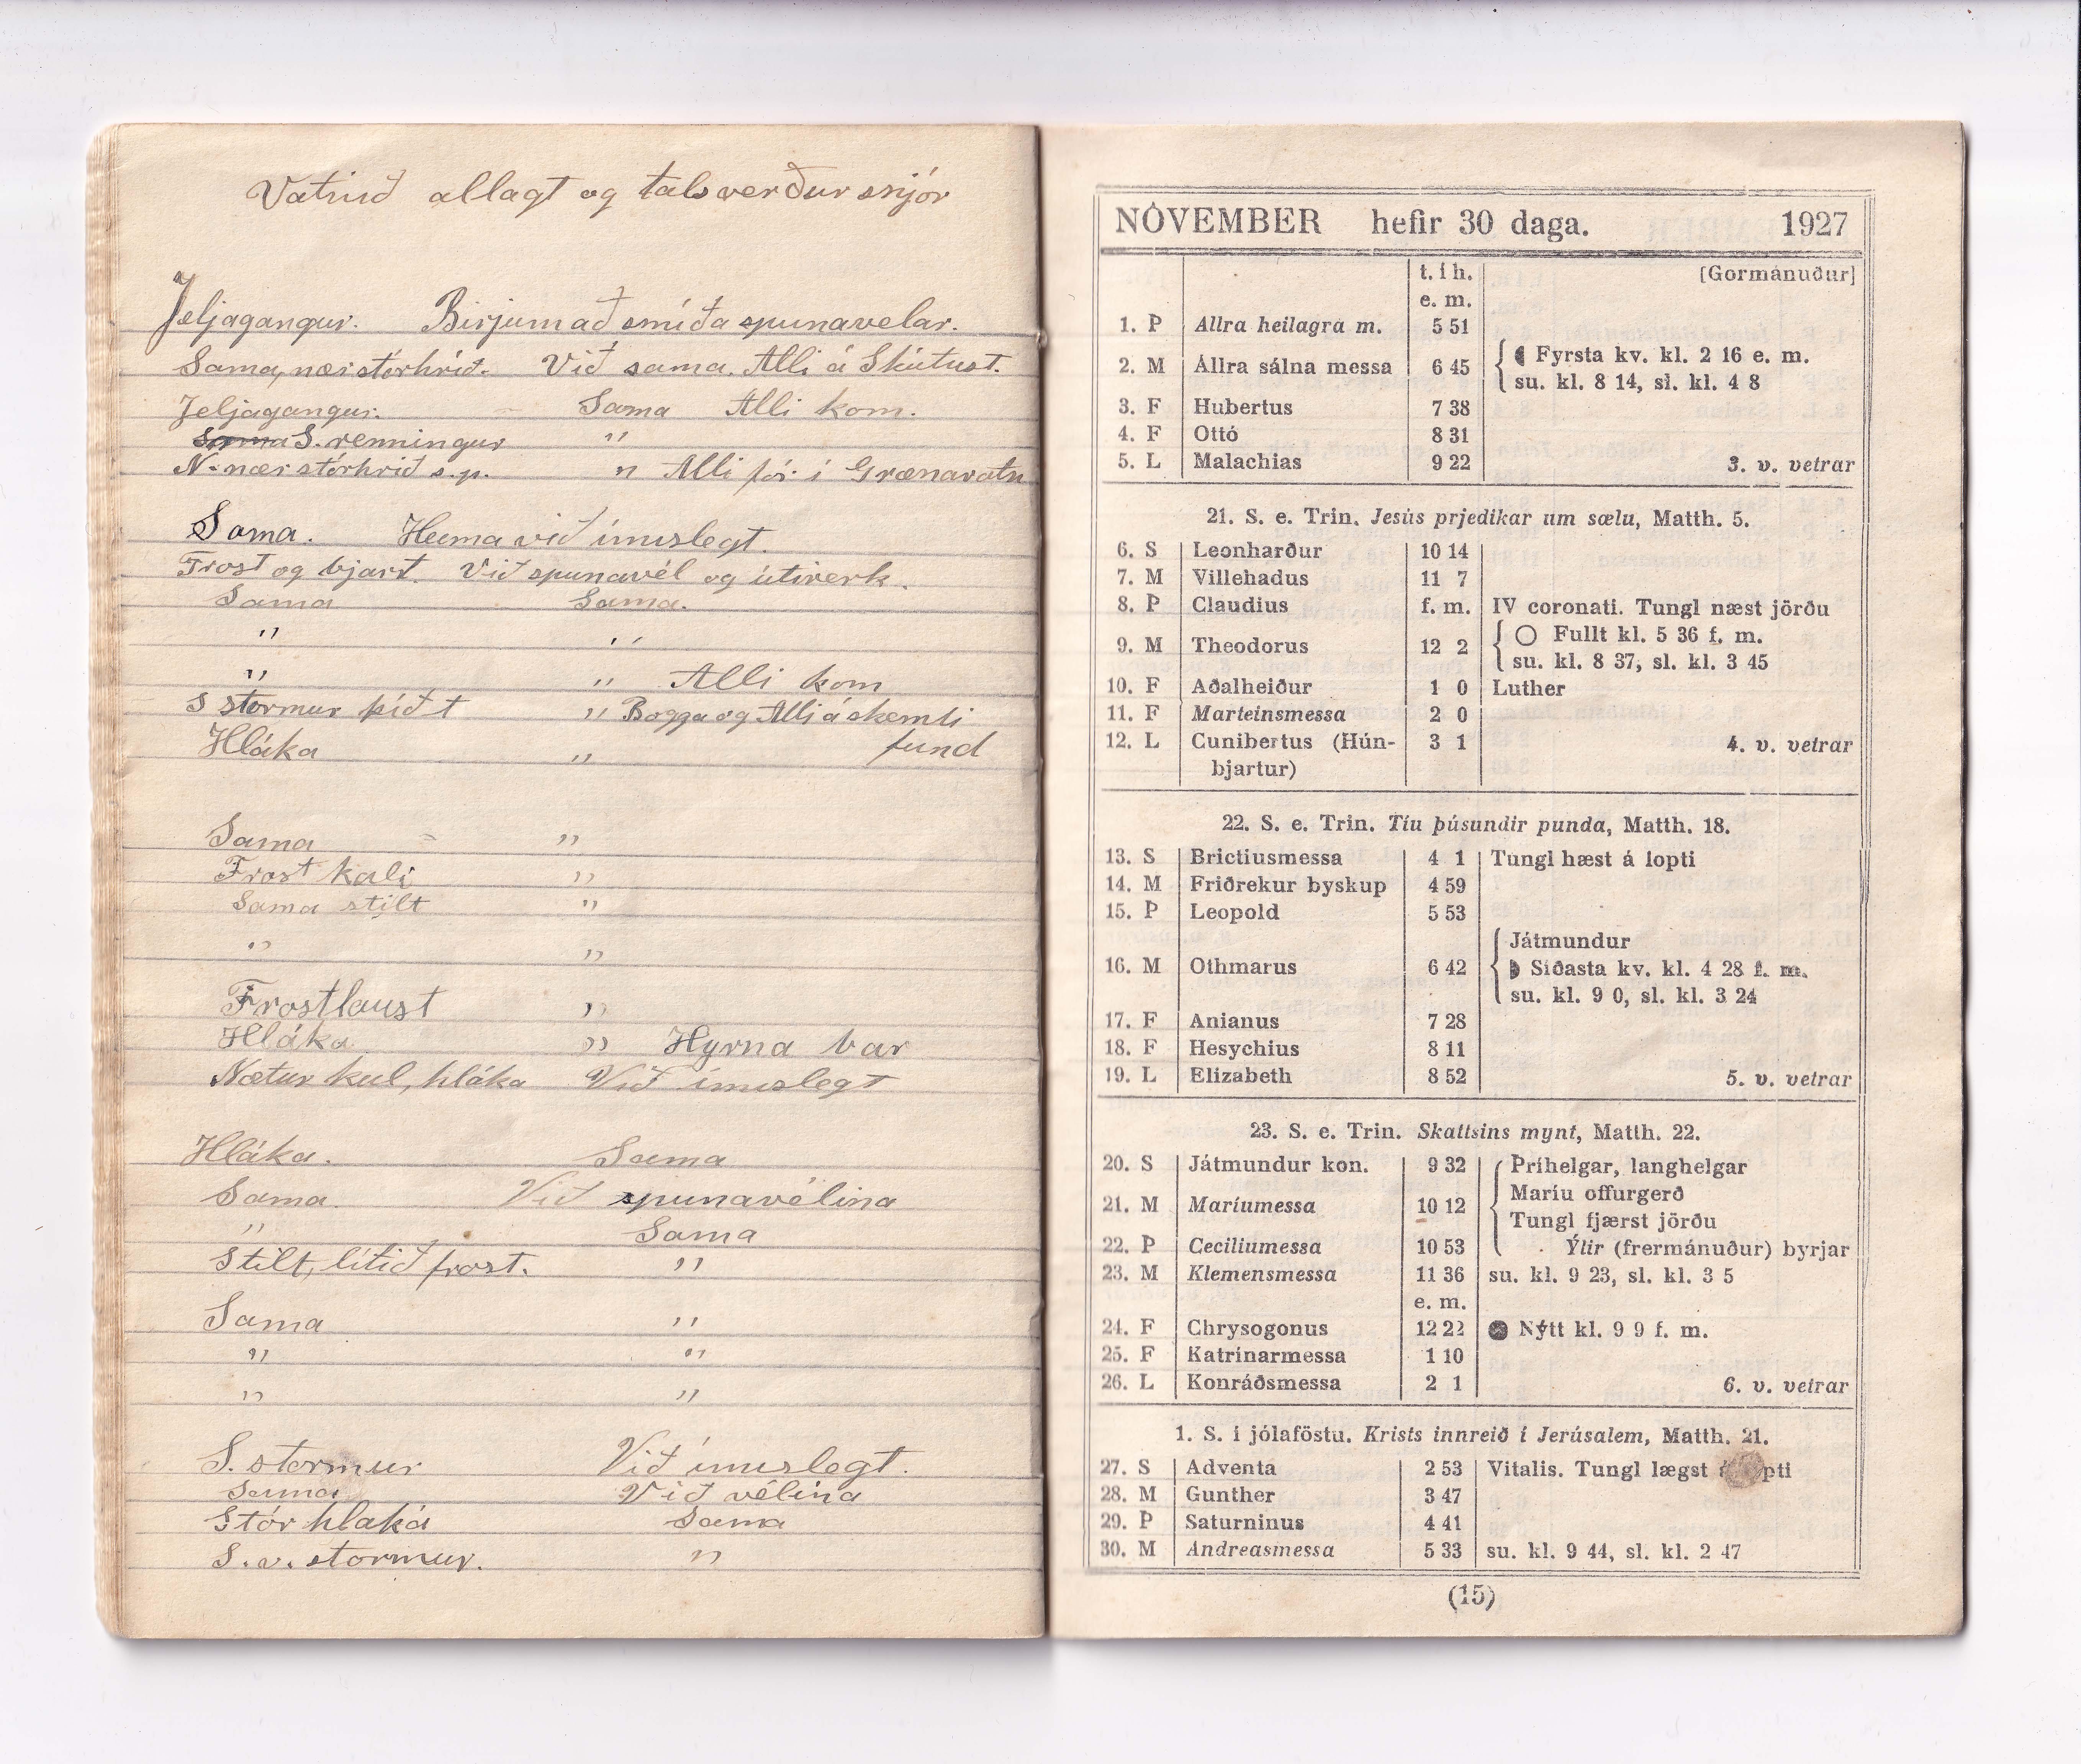 Vatnið allagt og talsverður snjór
Jeljagangur. Birjum að smíða spunavelar.
Sama, nær stórhríð. Við sama. Alli á Skútust.
Jeljagangur. Sama Alli kom.
Sama S. renningur "
N. nær stórhríð s.p. " Alli fór í Grænavatn
Sama. Heima við ímislegt.
Frost og bjart. Við spunavél og útiverk.
Sama Sama.
" "
" " Alli kom
S stormur þíðt " Bogga og Alli á skemti
Hláka " fund
Sama "
Frost kali "
Sama stilt "
" "
Frostlaust "
Hláka " Hyrna bar
Nætur kul, hláka Við ímislegt
Hláka. Sama
Sama. Við spunavélina
" Sama
Stilt, lítið frost. "
Sama "
" "
" "
S. stormur Við ímislegt.
Sama Við vélina
Stór hláka Sama
S.v. stormur. "
NÓVEMBER hefir 30 daga. 1927
t. í h. [Gormánuður]
e. m.
1. Þ Allra heilagra m. 5 51
2. M Allra sálna messa 6 45 Fyrsta kv. kl. 2 16 e. m.
su. kl. 8 14, sl. kl. 4 8
3. F Hubertus 7 38
4. F Ottó 8 31
5. L Malachias 9 22 3. v. vetrar
21. S. e. Trin. Jesús prjedikar um sælu, Matth. 5.
6. S Leonharður 10 14
7. M Villehadus 11 7
8. Þ Claudius f. m. IV coronati. Tungl næst jörðu
9. M Theodorus 12 2 Fullt kl. 5 36 f. m.
su. kl. 8 37, sl. kl. 3 45
10. F Aðalheiður 1 0 Luther
11. F Marteinsmessa 2 0
12. L Cunibertus (Hún- 3 1 4. v. vetrar
bjartur)
22. S. e. Trin. Tíu þúsundir punda, Matth. 18.
13. S Brictiusmessa 4 1 Tungl hæst á lopti
14. M Friðrekur byskup 4 59
15. Þ Leopold 5 53
Játmundur
16. M Othmarus 6 42 Síðasta kv. kl. 4 28 f. m.
su. kl. 9 0, sl. kl. 3 24
17. F Anianus 7 28
18. F Hesychius 8 11
19. L Elizabeth 8 52 5. v. vetrar
23. S. e. Trin. Skattsins mynt, Matth. 22.
20. S Játmundur kon. 9 32 Þríhelgar, langhelgar
Maríu offurgerð
21. M Maríumessa 10 12
Tungl fjærst jörðu
22. Þ Ceciliumessa 10 53 Ýlir (frermánuður) byrjar
23. M Klemensmessa 11 36 su. kl. 9 23, sl. kl. 3 5
e. m.
24. F Chrysogonus 12 22 Nýtt kl. 9 9 f. m.
25. F Katrínarmessa 1 10
26. L Konráðsmessa 2 1 6. v. vetrar
1. S. í jólaföstu. Krists innreið í Jerúsalem, Matth. 21.
27. S Adventa 2 53 Vitalis. Tungl lægst á lopti
28. M Gunther 3 47
29. Þ Saturninus 4 41
30. M Andreasmessa 5 33 su. kl. 9 44, sl. kl. 2 47
(15)